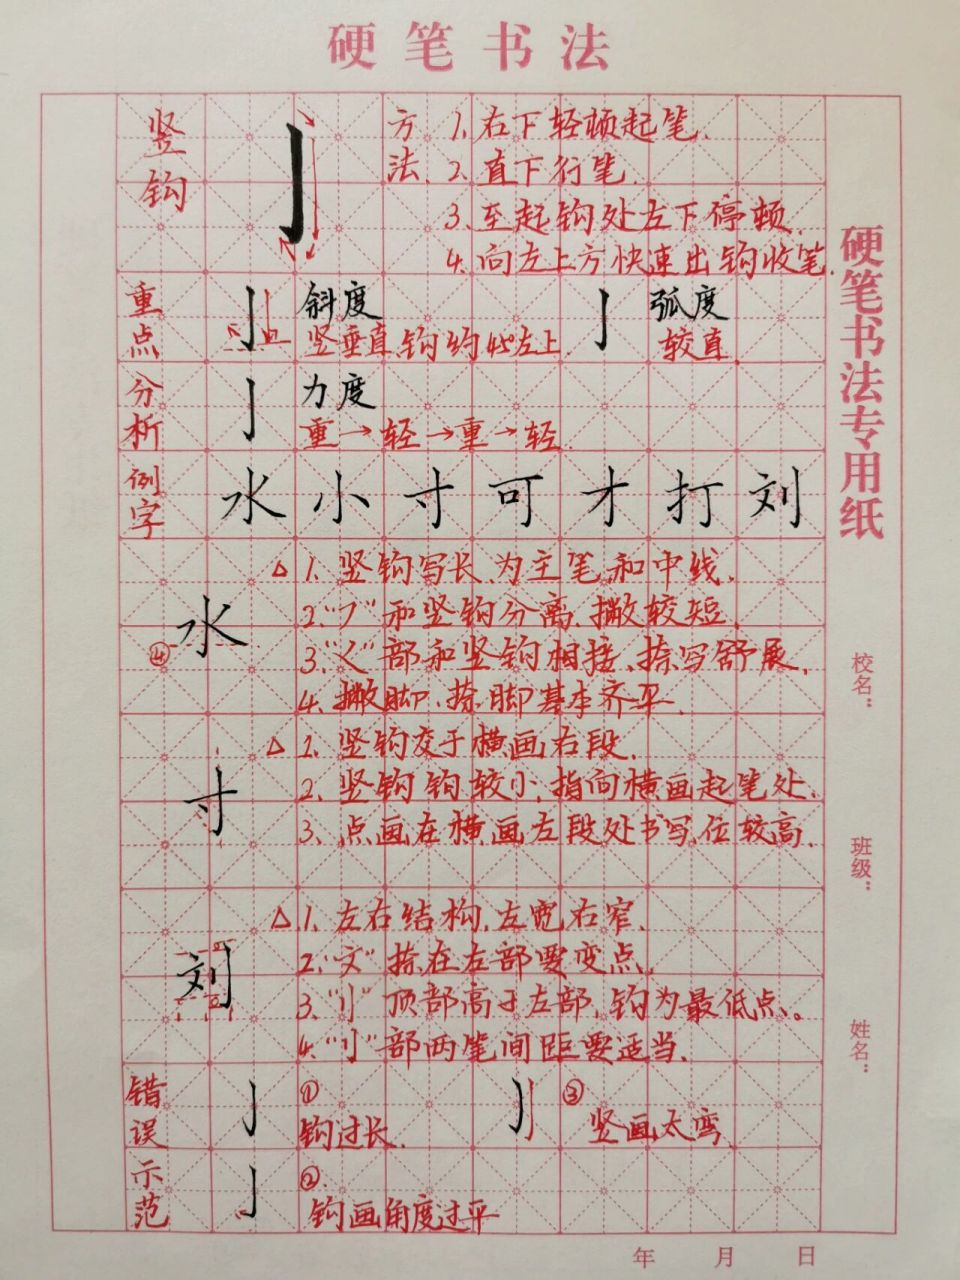 硬笔书法
竖钩
方法
1. 右下轻顿起笔.
2. 直下行笔.
3. 至起钩处左下停顿.
4. 向左上方快速出钩收笔.
重点
分析
亅 斜度
竖垂直,钩约45°左上.
亅 弧度
较直.
亅 力度
重→轻→重→轻.
例字
水 小 寸 可 才 打 刘
水
④
△ 1. 竖钩写长、为主笔和中线.
2. “㇇”和竖钩分离.撇较短.
3. “く”部和竖钩相接、捺写舒展.
4. 撇脚、捺脚基本齐平.
寸
△ 1. 竖钩交于横画右段.
2. 竖钩钩较小,指向横画起笔处.
3. 点画在横画左段处书写,位较高.
刘
△ 1. 左右结构,左宽右窄.
2. “文”捺在左部要变点.
3. “刂”顶部高于左部,钩为最低点。
4. “刂”部两笔间距要适当.
错误
示范
亅 ①
钩过长.
亅 ③
竖画太弯.
亅 ②.
钩画角度过平
硬笔书法专用纸
校名：
班级：
姓名：
年 月 日